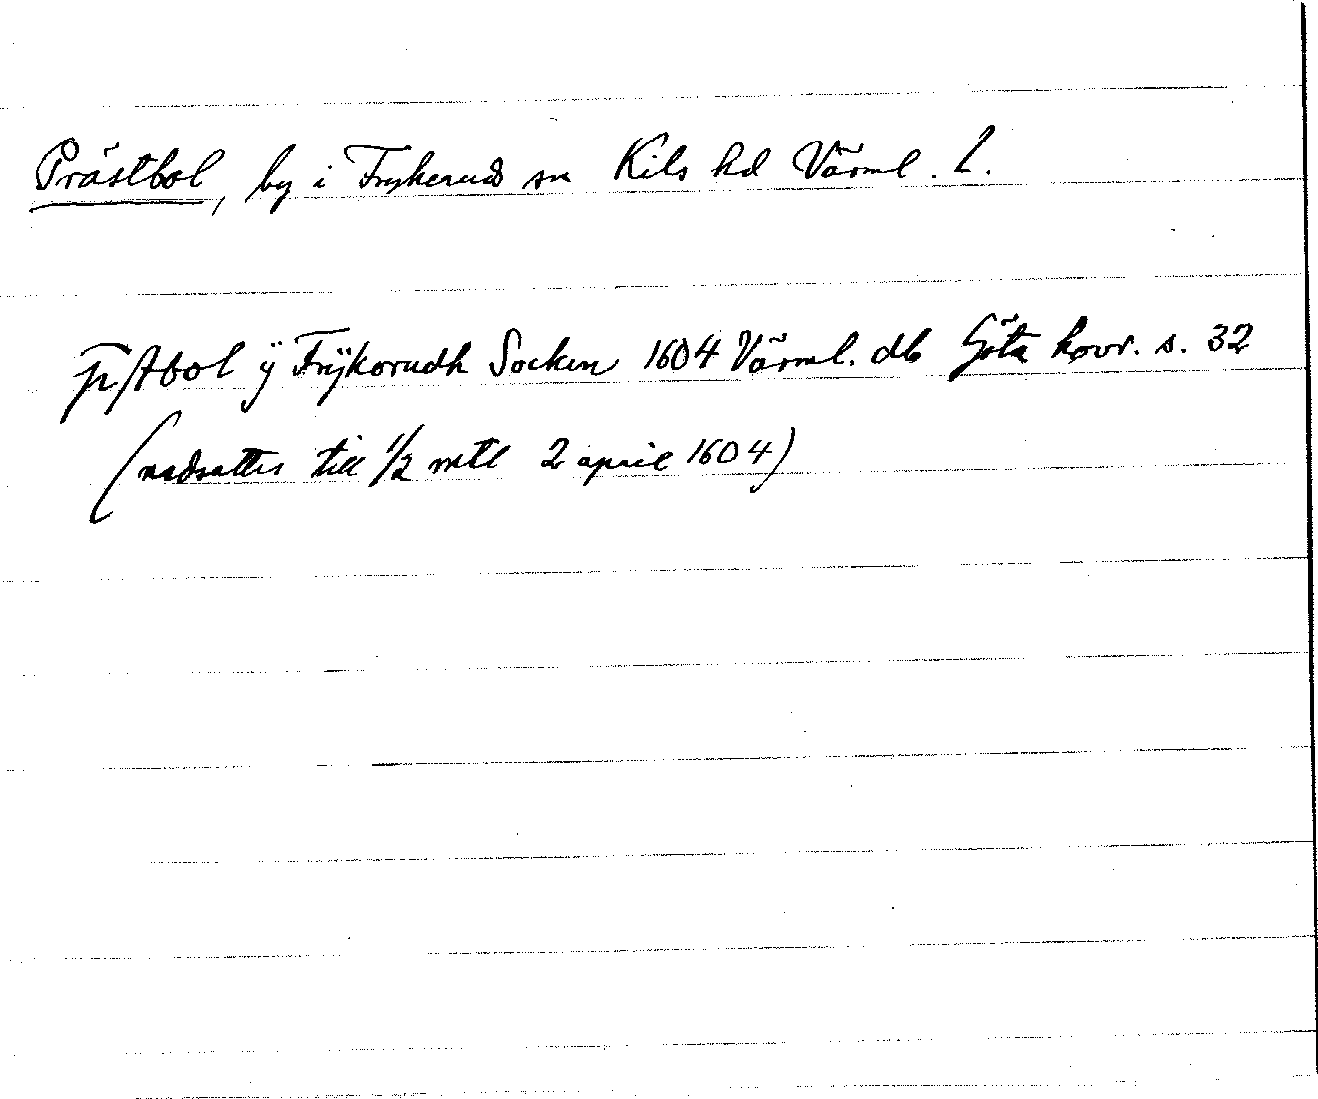 Prästbol, by i Frykeruds sn Kils hd Värml. L.
p̄stbol ÿ Frÿkorudh Socken 1604 Värml. db Göta hovr. s. 32
(nedsattes till 1/2 mtl 2 april 1604)